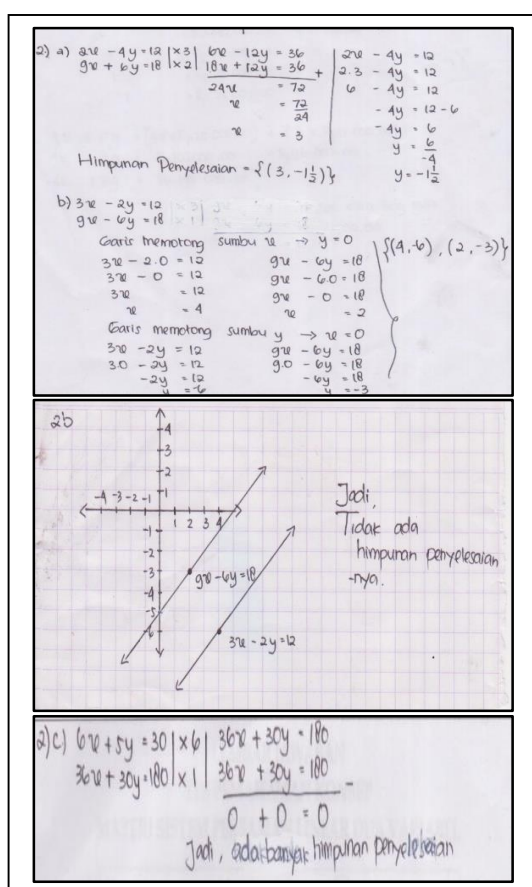 2) a) 2x - 4y = 12 | x3 | 6x - 12y = 36 | 2x - 4y = 12
9x + 6y = 18 | x2 | 18x + 12y = 36 + | 2.3 - 4y = 12
24x = 72 | 6 - 4y = 12
x = 72/24 | - 4y = 12 - 6
x = 3 | - 4y = 6
y = 6/-4
Himpunan Penyelesaian = {(3, -1 1/2)} y = -1 1/2
b) 3x - 2y = 12
9x - 6y = 18
Garis memotong sumbu x → y = 0
3x - 2.0 = 12 9x - 6y = 18 {(4, -6), (2, -3)}
3x - 0 = 12 9x - 6.0 = 18
3x = 12 9x - 0 = 18
x = 4 x = 2
Garis memotong sumbu y → x = 0
3x - 2y = 12 9x - 6y = 18
3.0 - 2y = 12 9.0 - 6y = 18
-2y = 12 -6y = 18
y = -6 y = -3
2b
4
3
2
1
-4 -3 -2 -1
1 2 3 4
-1
-2
-3
-4
-5
-6
9x - 6y = 18
3x - 2y = 12
Jadi,
Tidak ada
himpunan penyelesaian
-nya.
2) c) 6x + 5y = 30 | x6 | 36x + 30y = 180
36x + 30y = 180 | x1 | 36x + 30y = 180 -
0 + 0 = 0
Jadi, ada banyak himpunan penyelesaian